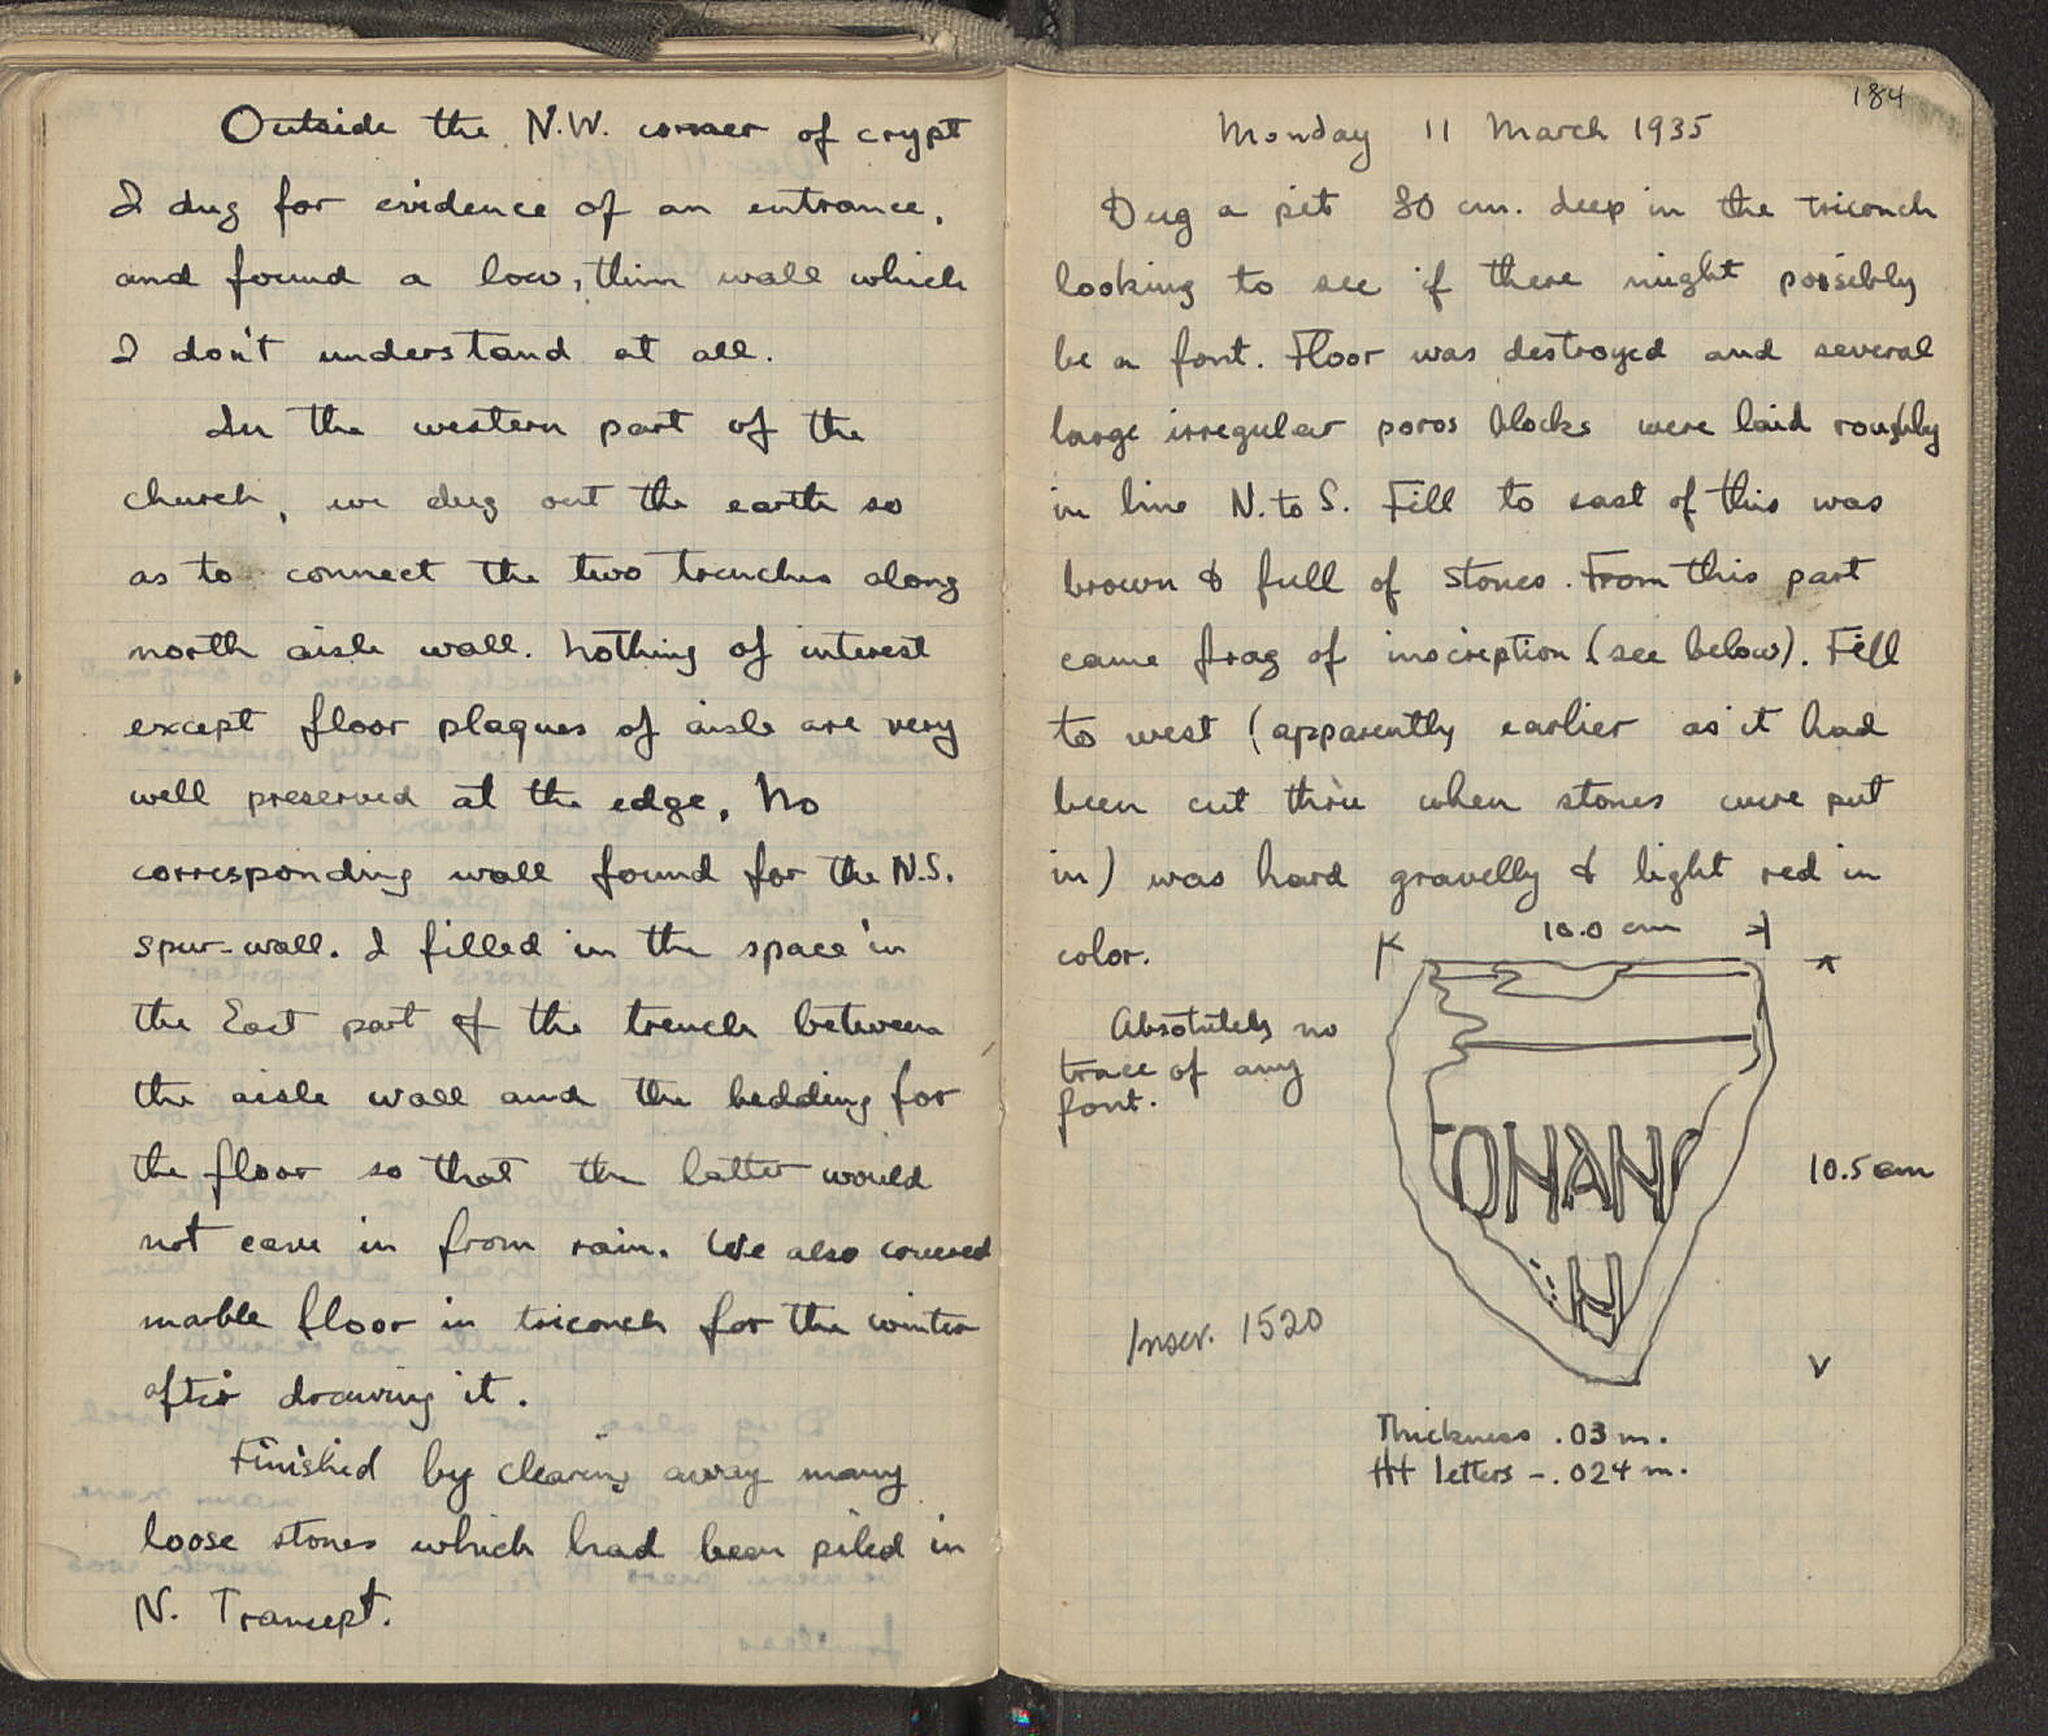 Outside the N.W. corner of crypt
I dug for evidence of an entrance,
and found a low, thin wall which
I don't understand at all.
In the western part of the
church, we dug out the earth so
as to connect the two trenches along
north aisle wall. Nothing of interest
except floor plaques of aisle are very
well preserved at the edge. No
corresponding wall found for the N.S.
spur-wall. I filled in the space in
the East part of the trench between
the aisle wall and the bedding for
the floor so that the latter would
not cave in from rain. We also covered
marble floor in triconch for the winter
after drawing it.
Finished by clearing away many
loose stones which had been piled in
N. Transept.
184
Monday 11 March 1935
Dug a pit 80 cm. deep in the triconch
looking to see if there might possibly
be a font. Floor was destroyed and several
large irregular poros blocks were laid roughly
in line N. to S. Fill to east of this was
brown & full of stones. From this part
came frag of inscription (see below). Fill
to west (apparently earlier as it had
been cut thru when stones were put
in) was hard gravelly & light red in
color.
10.0 cm
Absolutely no
trace of any
font.
ΟΗΑΝ
10.5 cm
Η
Inscr. 1520
Thickness .03 m.
Ht letters - .024 m.